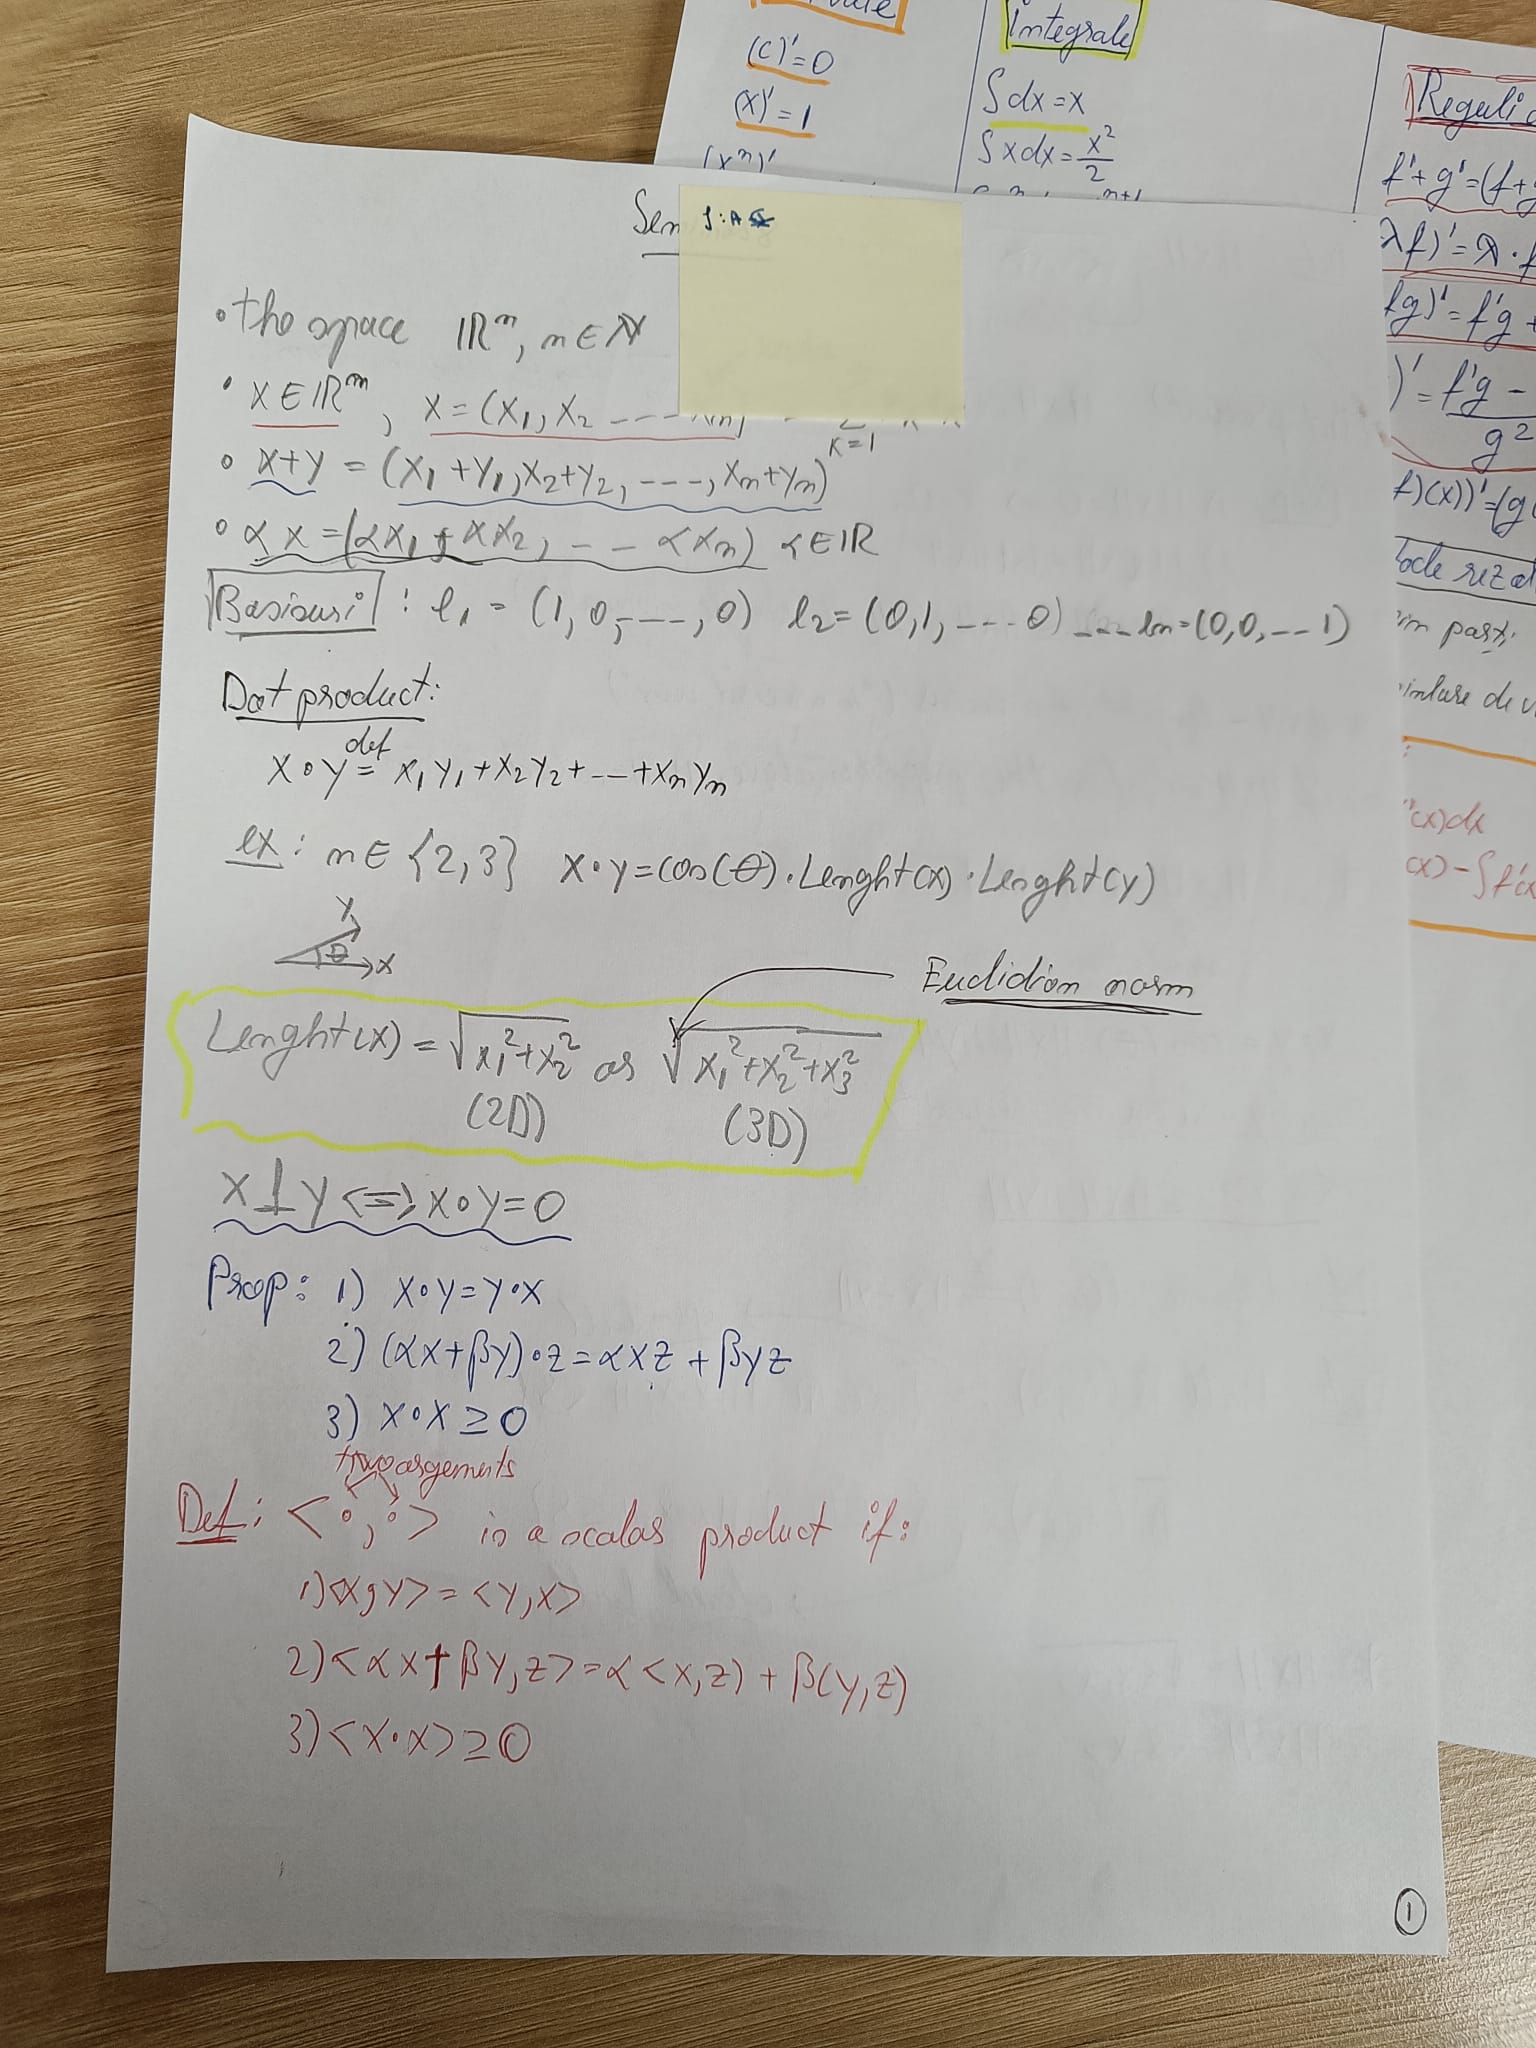 (C)'=0
(x)'=1
(x^n)'
Integrale
∫dx=x
∫xdx=x²/2
Reguli
f'+g'=(f+g
λf)'=λ·f
fg)'=f'g+
)'=f'g-
g²
f)(x))'=(g
rin parti
(x)dx
(x)-∫f'(x
Sem
• the space ℝⁿ, n∈ℕ
• x∈ℝⁿ, x=(x₁,x₂ ---- xₙ)
K=1
• x+y=(x₁+y₁,x₂+y₂,---,xₙ+yₙ)
• αx=(αx₁,αx₂,-- αxₙ) α∈ℝ
: e₁=(1,0,---,0) e₂=(0,1,---0)---en=(0,0,--1)
Dot product:
def
x•y=x₁y₁+x₂y₂+--+xₙyₙ
ex: n∈{2,3} x•y=cos(θ)•Lenght(x)•Lenght(y)
y
θ
x
Euclidian norm
Lenght(x)=√x₁²+x₂² or √x₁²+x₂²+x₃²
(2D) (3D)
x⊥y<=>x•y=0
Prop: 1) x•y=y•x
2) (αx+βy)•z=αxz+βyz
3) x•x≥0
two argements
Def: <•,•> is a scalar product if:
1)<x,y>=<y,x>
2)<αx+βy,z>=α<x,z)+β(y,z)
3)<x•x>≥0
1